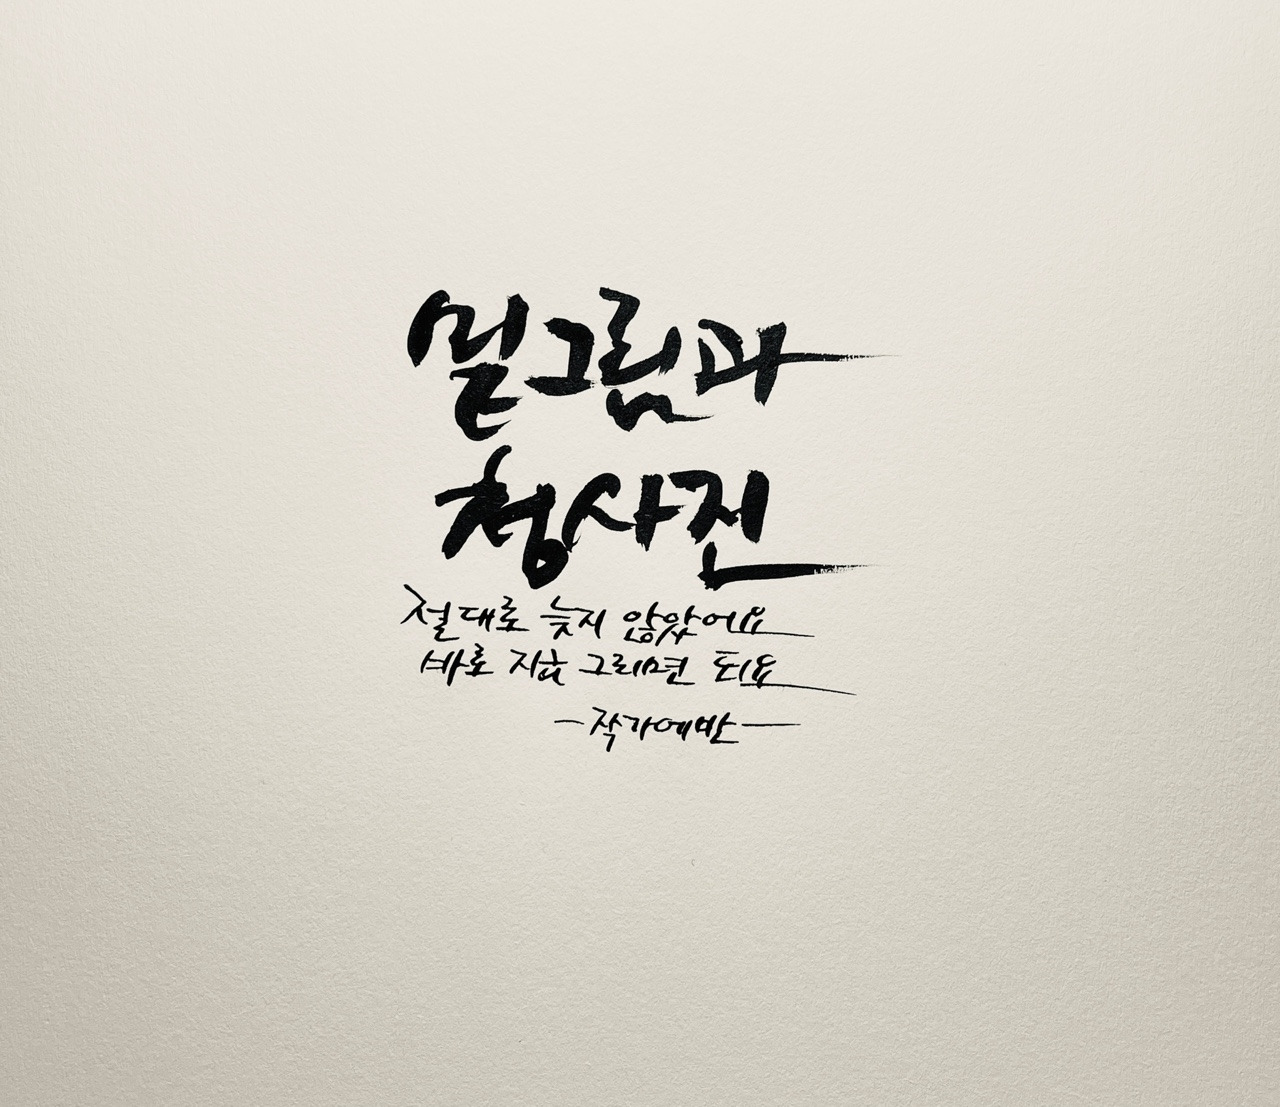 밑그림과
청사진
절대로 늦지 않았어요
바로 지금 그리면 되요
-작가에반-